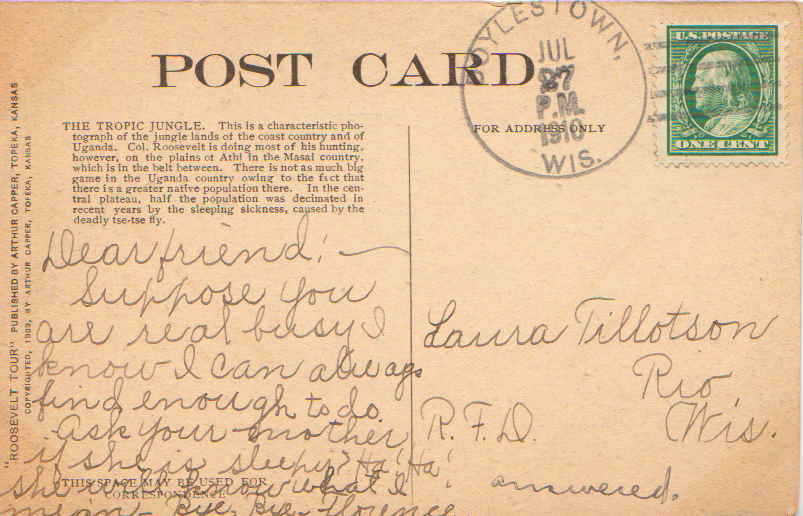 POST CARD
DOYLESTOWN,
JUL
27
P.M.
1910
WIS.
U.S. POSTAGE
ONE CENT
THE TROPIC JUNGLE. This is a characteristic pho-
tograph of the jungle lands of the coast country and of
Uganda. Col. Roosevelt is doing most of his hunting,
however, on the plains of Athi in the Masai country,
which is in the belt between. There is not as much big
game in the Uganda country owing to the fact that
there is a greater native population there. In the cen-
tral plateau, half the population was decimated in
recent years by the sleeping sickness, caused by the
deadly tse-tse fly.
FOR ADDRESS ONLY
"ROOSEVELT TOUR" PUBLISHED BY ARTHUR CAPPER, TOPEKA, KANSAS
COPYRIGHTED, 1909, BY ARTHUR CAPPER, TOPEKA, KANSAS
Dear friend; —
Suppose you
are real busy I
know I can always
find enough to do.
Ask your mother
if she is sleepy? Ha! Ha!
she will know what I
mean - Bye, Bye - Florence
THIS SPACE MAY BE USED FOR
CORRESPONDENCE
Laura Tillotson
Rio,
R.F.D. Wis.
answered.